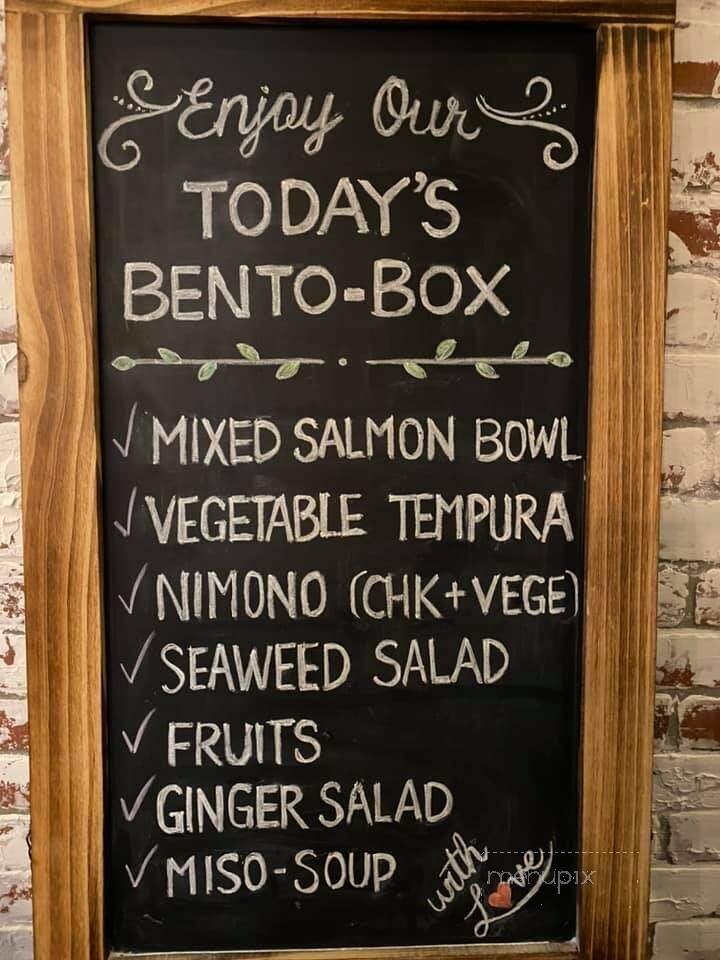 Enjoy Our
TODAY'S
BENTO-BOX
✓ MIXED SALMON BOWL
✓ VEGETABLE TEMPURA
✓ NIMONO (CHK+VEGE)
✓ SEAWEED SALAD
✓ FRUITS
✓ GINGER SALAD
✓ MISO-SOUP
with
Love
menupix